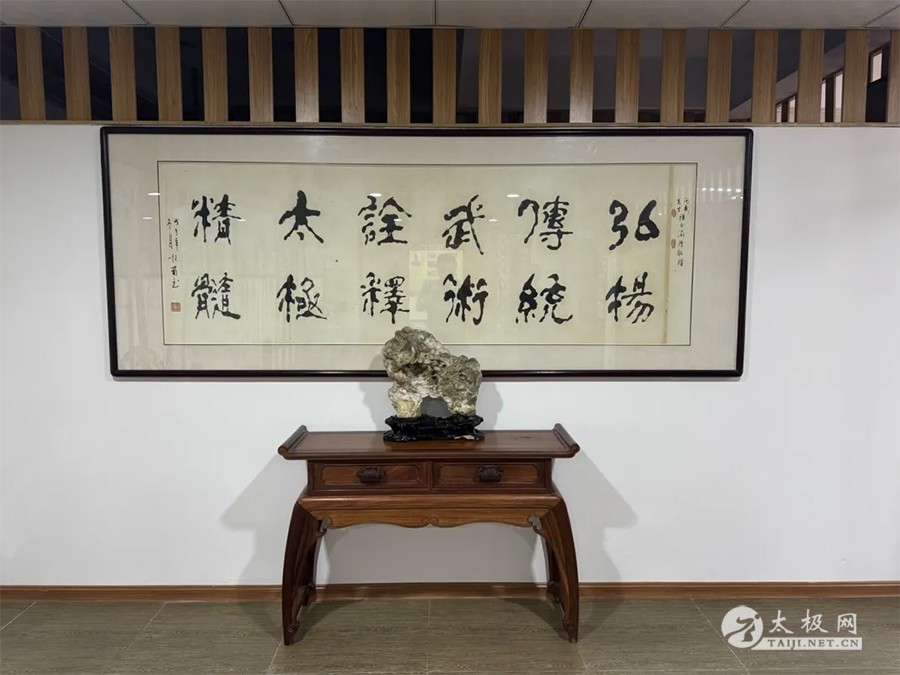 弘揚
傳統
武術
詮釋
太極
精髓
太极网
TAIJI.NET.CN